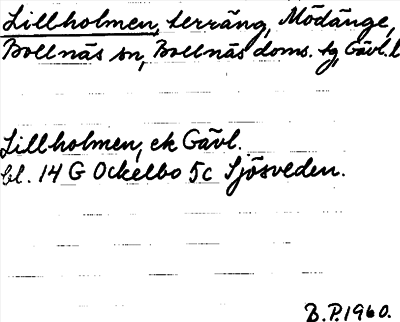 Lillholmen, terräng, Mödänge,
Bollnäs sn, Bollnäs doms. tg, Gävl. l
Lillholmen, ek Gävl.
bl. 14 G Ockelbo 5c Sjösveden.
B.P. 1960.